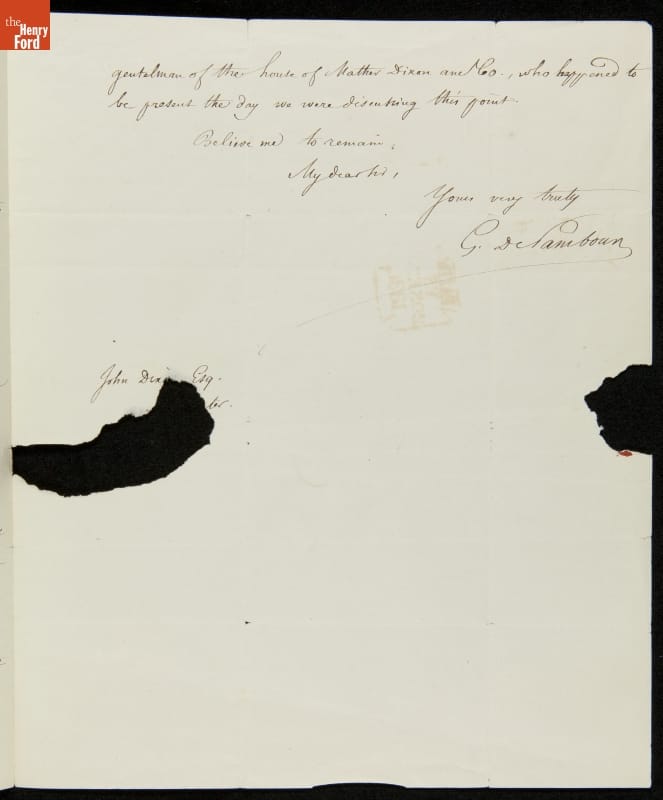 the
Henry
Ford
gentelman of the house of Mather Dixon and Co., who happened to
be present the day we were discussing this point.
Believe me to remain,
My dear Sir,
Yours very truly
G. De Pambour
John Dix Esq.
ter.